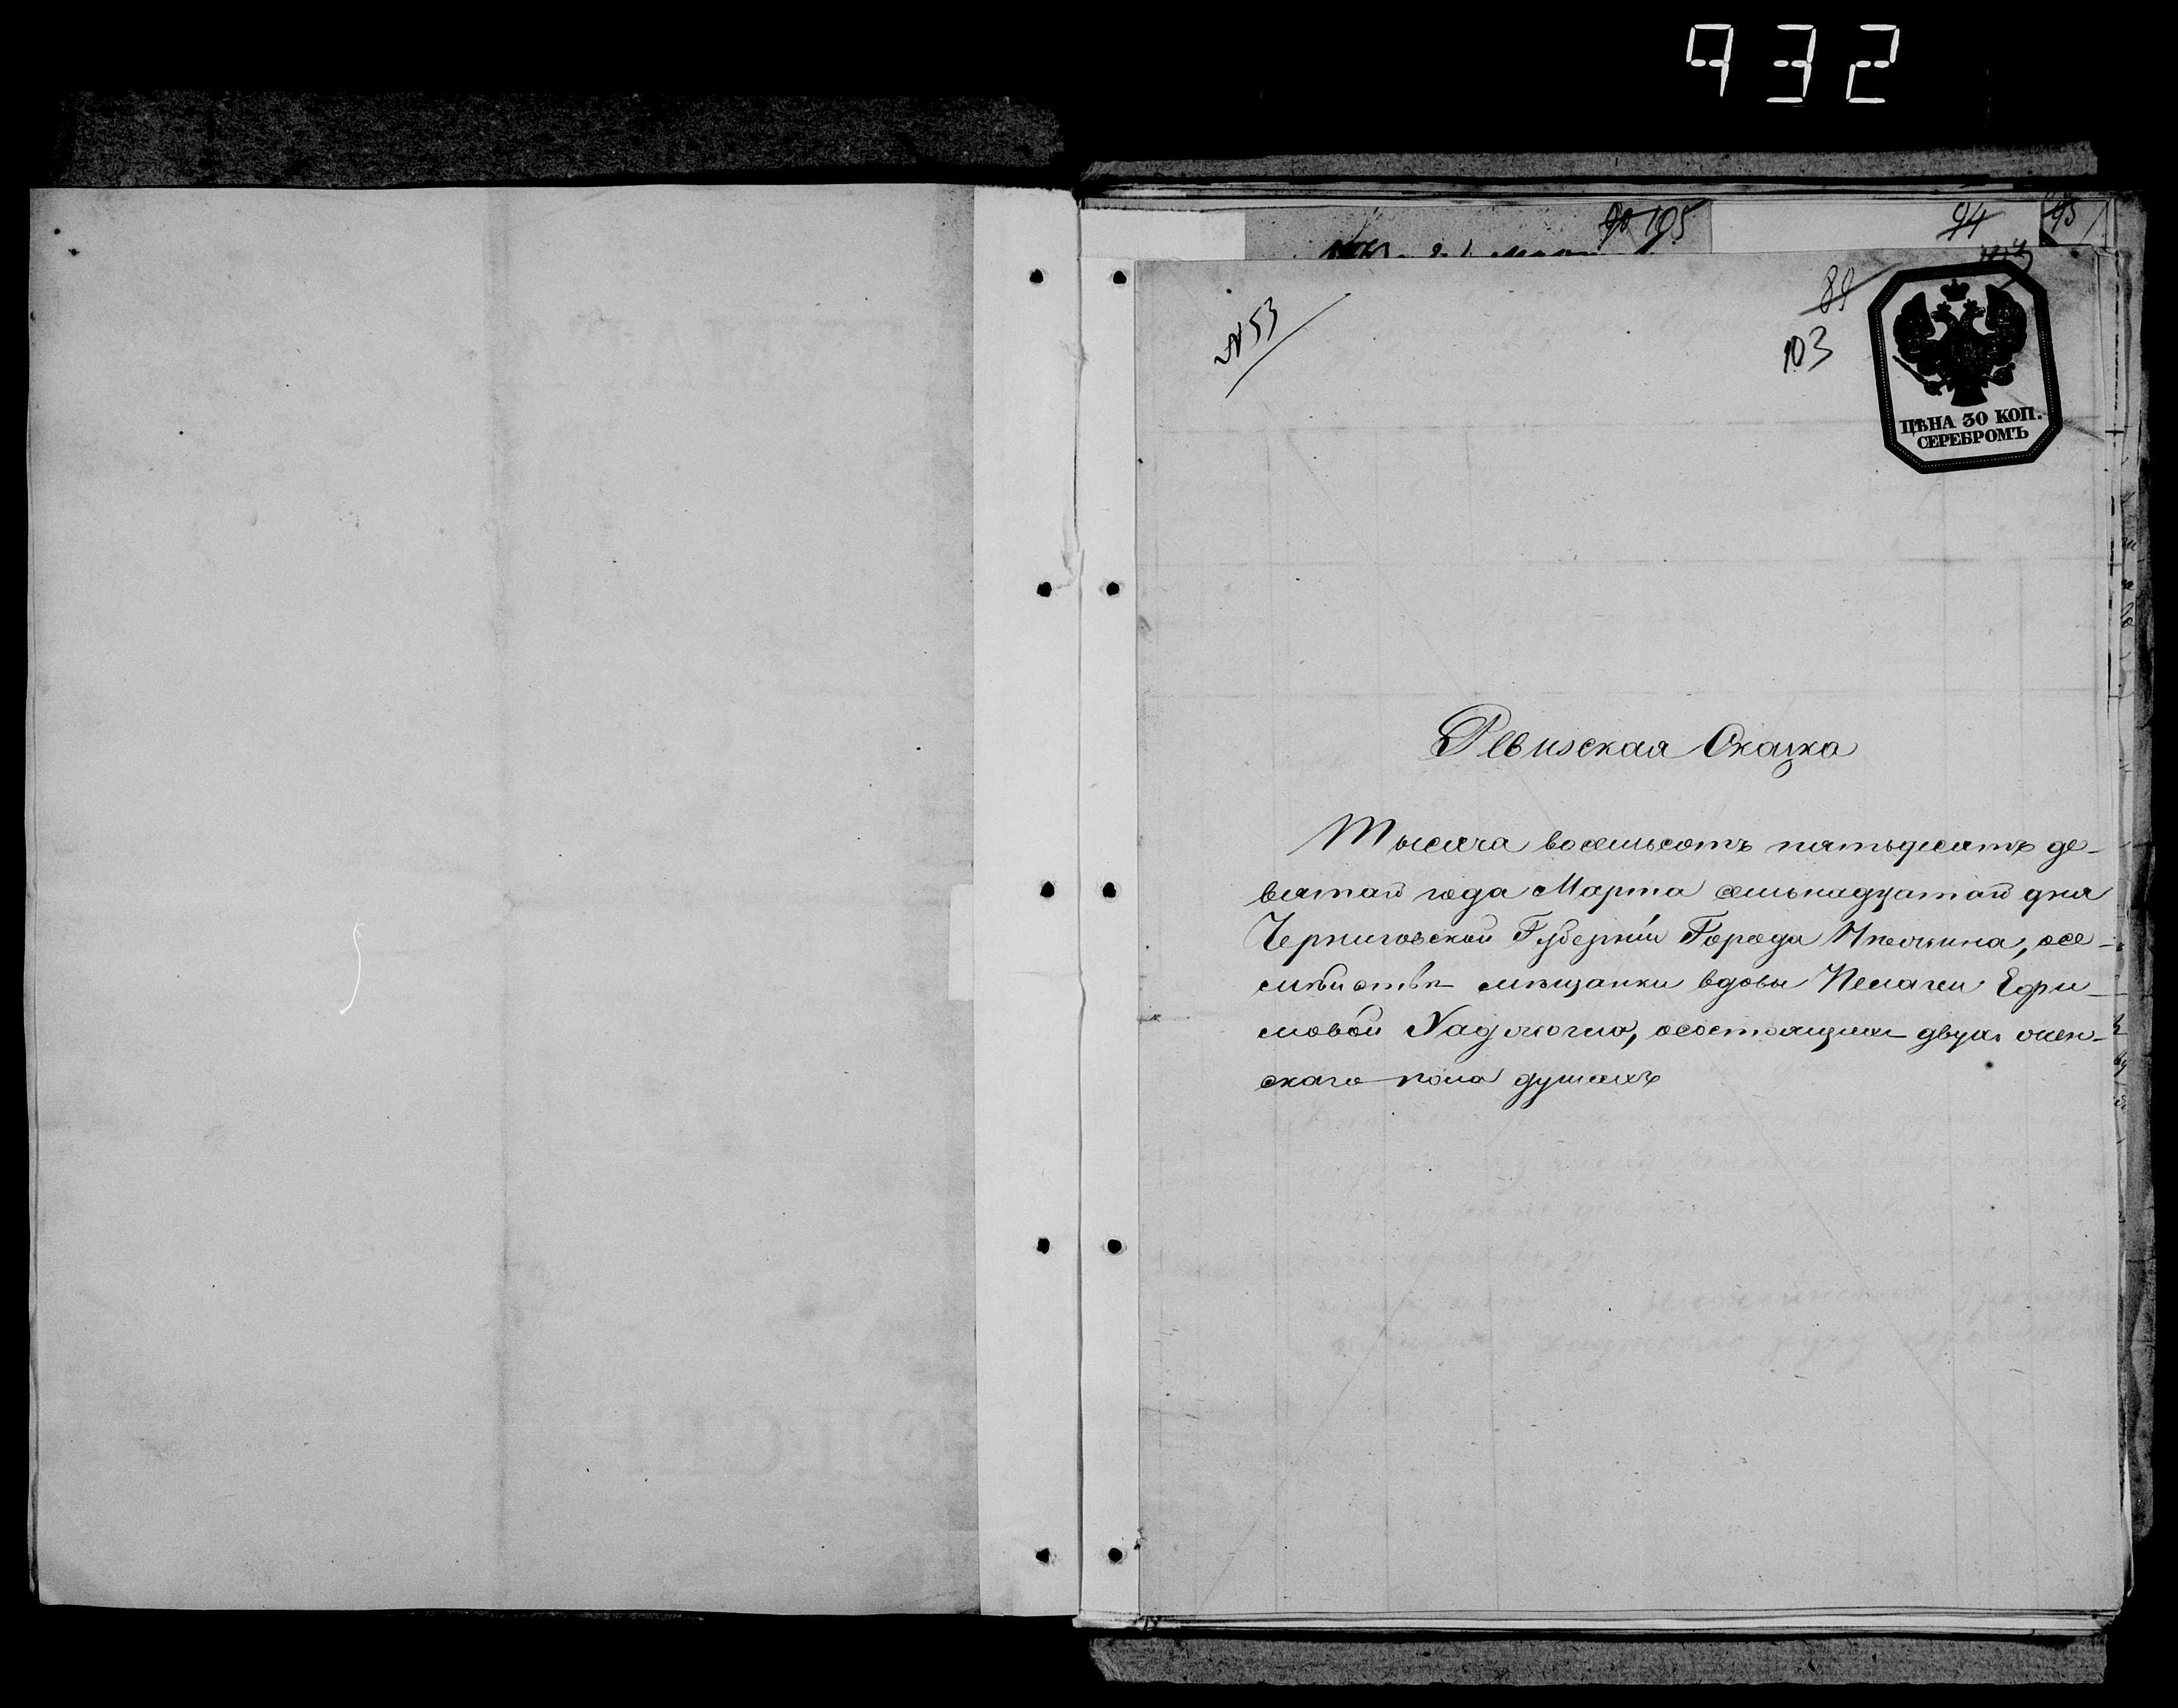 932
90 105
94
95
N 53
89
103
ЦѢНА 30 КОП.
СЕРЕБРОМЪ
Ревизская Сказка
Тысяча восемьсотъ пятьдесятъ де-
вятаго года Марта семьнадцатаго дня
Черниговской Губерніи Города Нѣжина, осе-
мѣйствѣ мѣщанки вдовы Пелагеи Ефи-
мовой, осостоящим двухъ жен-
скаго пола душахъ